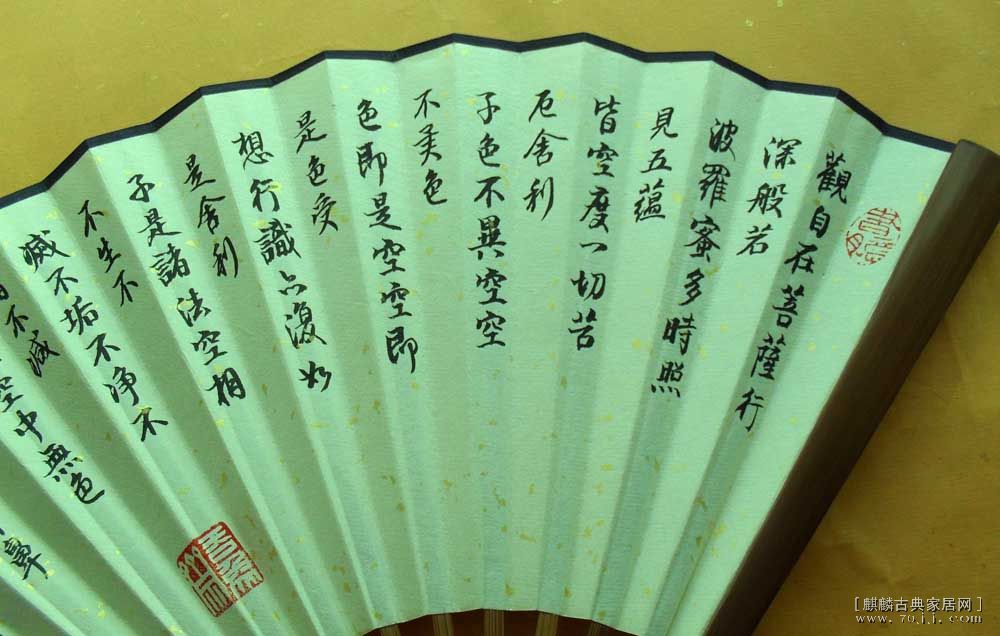 觀自在菩薩行
深般若
波羅蜜多時照
見五蘊
皆空度一切苦
厄舍利
子色不異空空
不異色
色即是空空即
是色受
想行識亦復如
是舍利
子是諸法空相
不生不
減不垢不淨不
不減
空中無色
鼻
[麒麟古典家居网]
www.70jj.com